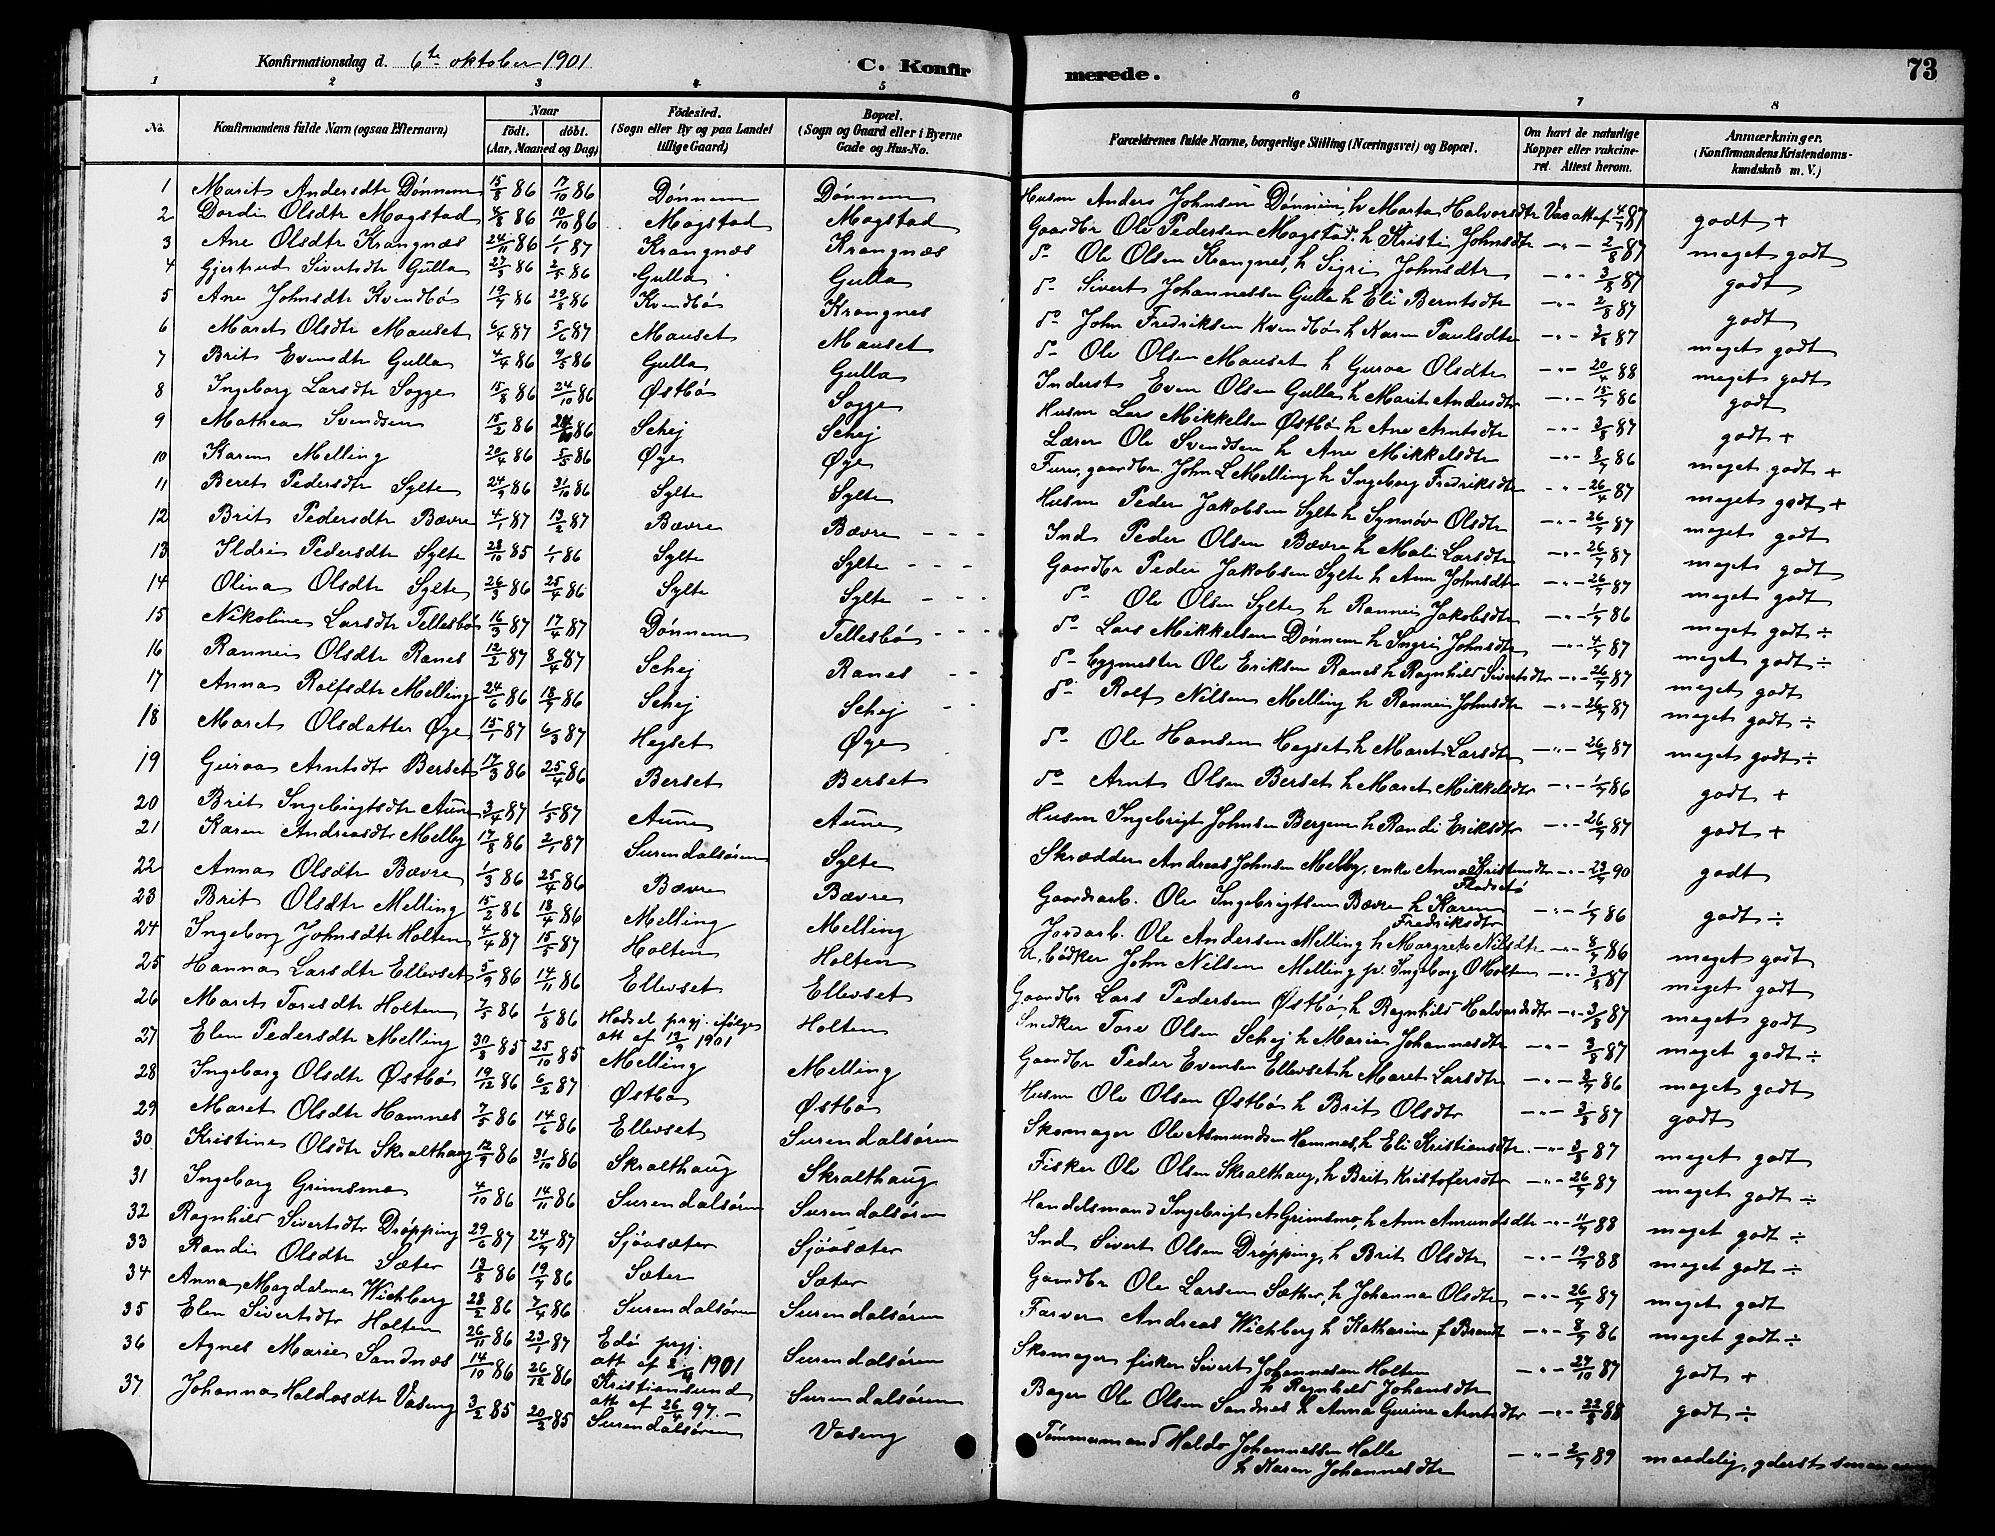 Konfirmationsdag d. 6te oktober 1901 C. Konfirmerede. 73
1 2 3 4 5 6 7 8
No. Konfirmandens fulde Navn (ogsaa Efternavn) Naar födt. döbt. (Aar, Maaned og Dag) Födested. (Sogn eller By og paa Landet tillige Gaard) Bopæl. (Sogn og Gaard eller i Byerne Gade og Hus-No. Forældrenes fulde Navne, borgerlige Stilling (Næringsvei) og Bopæl. Om havt de naturlige Kopper eller vakcineret. Attest herom. Anmærkninger. (Konfirmandens Kristendomskundskab m. V.)
1 Marit Andersdtr Dönnem 15/8 86 17/10 86 Dönnem Dönnem Husm Anders Johnsen Dönnem, h Marta Halvorsdtr Vac att af 4/7 87 godt +
2 Dordi Olsdtr Mogstad 4/8 86 10/10 86 Mogstad Mogstad Gaardbr Ole Pedersen Mogstad, h Kristi Johnsdtr -"- 2/8 87 meget godt
3 Ane Olsdtr Krangnæs 24/11 86 1/1 87 Krangnæs Krangnæs do Ole Olsen Krangnes, h Sigri Johnsdtr -"- 3/8 87 godt
4 Gjertrud Sivertsdtr Gulla 27/3 86 2/5 86 Gulla Gulla do Sivert Johannessen Gulla h Eli Berntsdtr -"- 2/8 87 godt
5 Ane Johnsdtr Kvendbö 19/7 86 29/8 86 Kvendbö Krangnes do John Fredriksen Kvendbö h Karen Paulsdtr -"- 3/8 87 meget godt
6 Maret Olsdtr Mauset 6/4 87 5/6 87 Mauset Mauset do Ole Olsen Mauset h Guroa Olsdtr -"- 20/4 88 meget godt
7 Brit Evensdtr Gulla 4/4 86 9/5 86 Gulla Gulla Inderst Even Olsen Gulla h Marit Andersdtr -"- 15/7 86 godt
8 Ingeborg Larsdtr Sogge 15/8 86 24/10 86 Østbö Sogge Husm Lars Mikkelsen Østbö h Ane Arntsdtr -"- 3/8 87 godt +
9 Mathea Svendsen 15/2 86 86 Schej Schej Lærer Ole Svendsen h Ane Mikkelsdtr -"- 8/7 86 meget godt +
10 Karen Melling 20/4 86 5/5 86 Øye Øye Furer, gaardbr. John L Melling h Ingeborg Fredriksdtr -"- 26/4 87 meget godt +
11 Beret Pedersdtr Sylte 24/9 86 31/10 86 Sylte Sylte Husm Peder Jakobsen Sylte h Synnöv Olsdtr -"- 26/7 87 meget godt
12 Brit Pedersdtr Bævre 4/1 87 13/2 87 Bævre Bævre Ind Peder Olsen Bævre h Mali Larsdtr -"- 26/7 87 meget godt
13 Ildri Pedersdtr Sylte 28/10 85 1/1 86 Sylte Sylte Gaardbr Peder Jakobsen Sylte h Ane Johnsdtr -"- 26/7 87 meget godt
14 Olina Olsdtr Sylte 26/3 86 25/4 86 Sylte Sylte do Ole Olsen Sylte h Rannei Jakobsdtr -"- 1/7 86 meget godt ÷
15 Nikoline Larsdtr Tellesbö 16/3 87 17/4 87 Dönnem Tellesbö do Lars Mikkelsen Dönnem h Ingri Johnsdtr -"- 4/7 87 meget godt ÷
16 Rannei Olsdtr Ranes 12/2 87 8/4 87 Schej Ranes do Bygmester Ole Eriksen Ranes h Ragnhild Sivertsdtr -"- 26/7 87 meget godt
17 Anna Rolfsdtr Melling 24/6 86 18/7 86 Schej Schej do Rolf Nilsen Melling h Rannei Johnsdtr -"- 26/7 87 meget godt ÷
18 Maret Olsdatter Øye 15/1 87 6/3 87 Hegset Øye do Ole Hansen Hegset h Maret Larsdtr -"- 26/7 87 meget godt ÷
19 Guroa Arntsdtr Berset 17/3 86 25/4 86 Berset Berset do Arnt Olsen Berset h Maret Mikkelsdtr -"- 1/7 86 godt +
20 Brit Ingebrigtsdtr Aune 3/4 87 1/5 87 Aune Aune Husm Ingebrigt Johnsen Bergem h Randi Eriksdtr -"- 26/7 87 godt +
21 Karen Andreasdtr Melby 17/8 86 2/1 87 Surendalsören Sylte Skrædder Andreas Johnsen Melby, enke Anna Kristensdtr -"- 23/7 90 godt
22 Anna Olsdtr Bævre 1/3 86 25/4 86 Bævre Bævre Gaardsarb. Ole Ingebrigtsen Bævre h Karen Fredriksdtr -"- 1/7 86 godt ÷
23 Brit Olsdtr Melling 15/2 86 18/4 86 Melling Melling Jordarb. Ole Andersen Melling h Margrete Nilsdtr -"- 8/7 86 meget godt
24 Ingeborg Johnsdtr Holten 4/4 87 15/5 87 Holten Holten U, bödker John Nilsen Melling p. Ingeborg O Holten -"- 3/8 87 meget godt
25 Hanna Larsdtr Ellevset 5/9 86 14/11 86 Ellevset Ellevset Gaardbr Lars Pedersen Østbö, h Ragnhild Halvordsdtr -"- 3/8 87 meget godt
26 Maret Toresdtr Holten 7/5 86 1/8 86 Hadsel prgj. ifølge att af 13/9 1901 Holten Snedker Tore Olsen Schej h Marie Johannesdtr -"- 3/8 87 meget godt ÷
27 Elen Pedersdtr Melling 30/8 85 25/10 85 Melling Melling Gaardbr Peder Evensen Ellevset h Maret Larsdtr -"- 8/7 86 meget godt
28 Ingeborg Olsdtr Østbö 19/12 86 6/2 87 Østbö Østbö Husm Ole Olsen Østbö h Brit Olsdtr -"- 3/8 87 godt
29 Maret Olsdtr Hamnes 7/5 86 14/6 86 Ellevset Surendalsören Skomager Ole Asmundsen Hamnes, h Eli Kristiansdtr -"- 3/8 87 meget godt
30 Kristine Olsdtr Skralthaug 12/9 86 31/10 86 Skralthaug Skralthaug Fisker Ole Olsen Skralthaug, h Brit Kristofersdtr -"- 26/7 87 meget godt ÷
31 Ingeborg Grimsmo 4/10 86 14/11 86 Surendalsören Surendalsören Handelsmand Ingebrigt A Grimsmo, h Ane Amundsdtr -"- 11/7 88 meget godt ÷
32 Ragnhild Sivertsdtr Dröpping 29/6 87 24/7 87 Sjöasæter Sjöasæter Ind Sivert Olsen Dröpping, h Brit Olsdtr -"- 19/7 88 meget godt ÷
33 Randi Olsdtr Sæter 13/8 86 19/9 86 Sæter Sæter Gaardbr Ole Larsen Sæther, h Johanna Olsdtr -"- 26/7 87 meget godt
34 Anna Magdalene Wichberg 28/2 86 7/4 86 Surendalsören Surendalsören Farver Andreas Wichberg h Katharina f Brandt -"- 8/7 86 meget godt ÷
35 Elen Sivertsdtr Holten 26/11 86 23/1 87 Edö prgj. att af 2/4 1901 Surendalsören Skomager fisker Sivert Johannesen Holten h Ragnhild Johansdtr -"- 24/10 87 godt +
36 Agnes Marie Sandnæs 14/10 86 26/12 86 Kristiansund att af 26/4 97. Surendalsören Bager Ole Olsen Sandnes h Anna Gurine Arntsdtr -"- 22/8 88 godt ÷
37 Johanna Haldosdtr Vaseng 3/2 85 20/2 85 Surendalsören Vaseng Tömmermand Haldo Johannessen Halle h Karen Johannesdtr -"- 2/7 89 maadelig, yderst